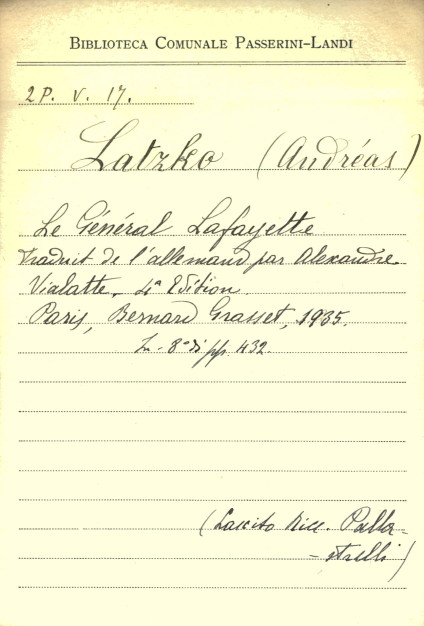 BIBLIOTECA COMUNALE PASSERINI-LANDI
2P. V. 17.
Latzko (Andréas)
Le Général Lafayette
traduit de l'allemand par Alexandre
Vialatte. 4a Edition
Paris, Bernard Grasset, 1935.
In-8° di pp. 432.
(Lascito Ricc. Palla-
-strelli)